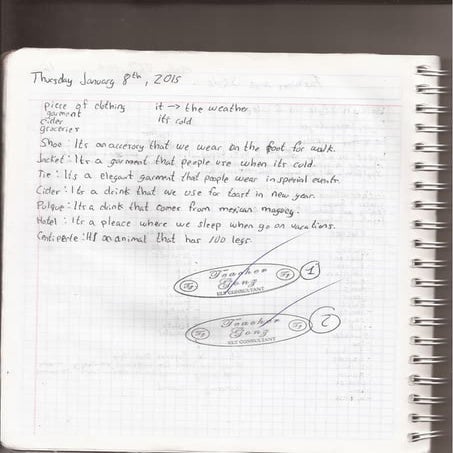 Thursday January 8th, 2015
piece of clothing it → the weather
garment it's cold
cider
groceries
Shoe: It's an accesory that we wear on the foot for walk.
Jacket: It's a garment that people use when it's cold.
Tie: It's a elegant garment that people wear in special events.
Cider: It's a drink that we use for toast in new year.
Pulque: It's a drink that comes from mexican maguey.
Hotel: It's a pleace where we sleep when go on vacations.
Centipente: It's an animal that has 100 legs.
1
Teacher
Gonz
ELT CONSULTANT
2
Teacher
Gonz
ELT CONSULTANT